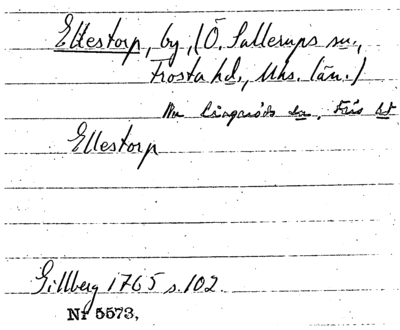 Ellestorp, by, (Ö. Sallerups sn.,
Frosta hd., Mhs. län.)
Nu
Ellestorp
Gillberg 1765 s. 102.
Nr 5573,